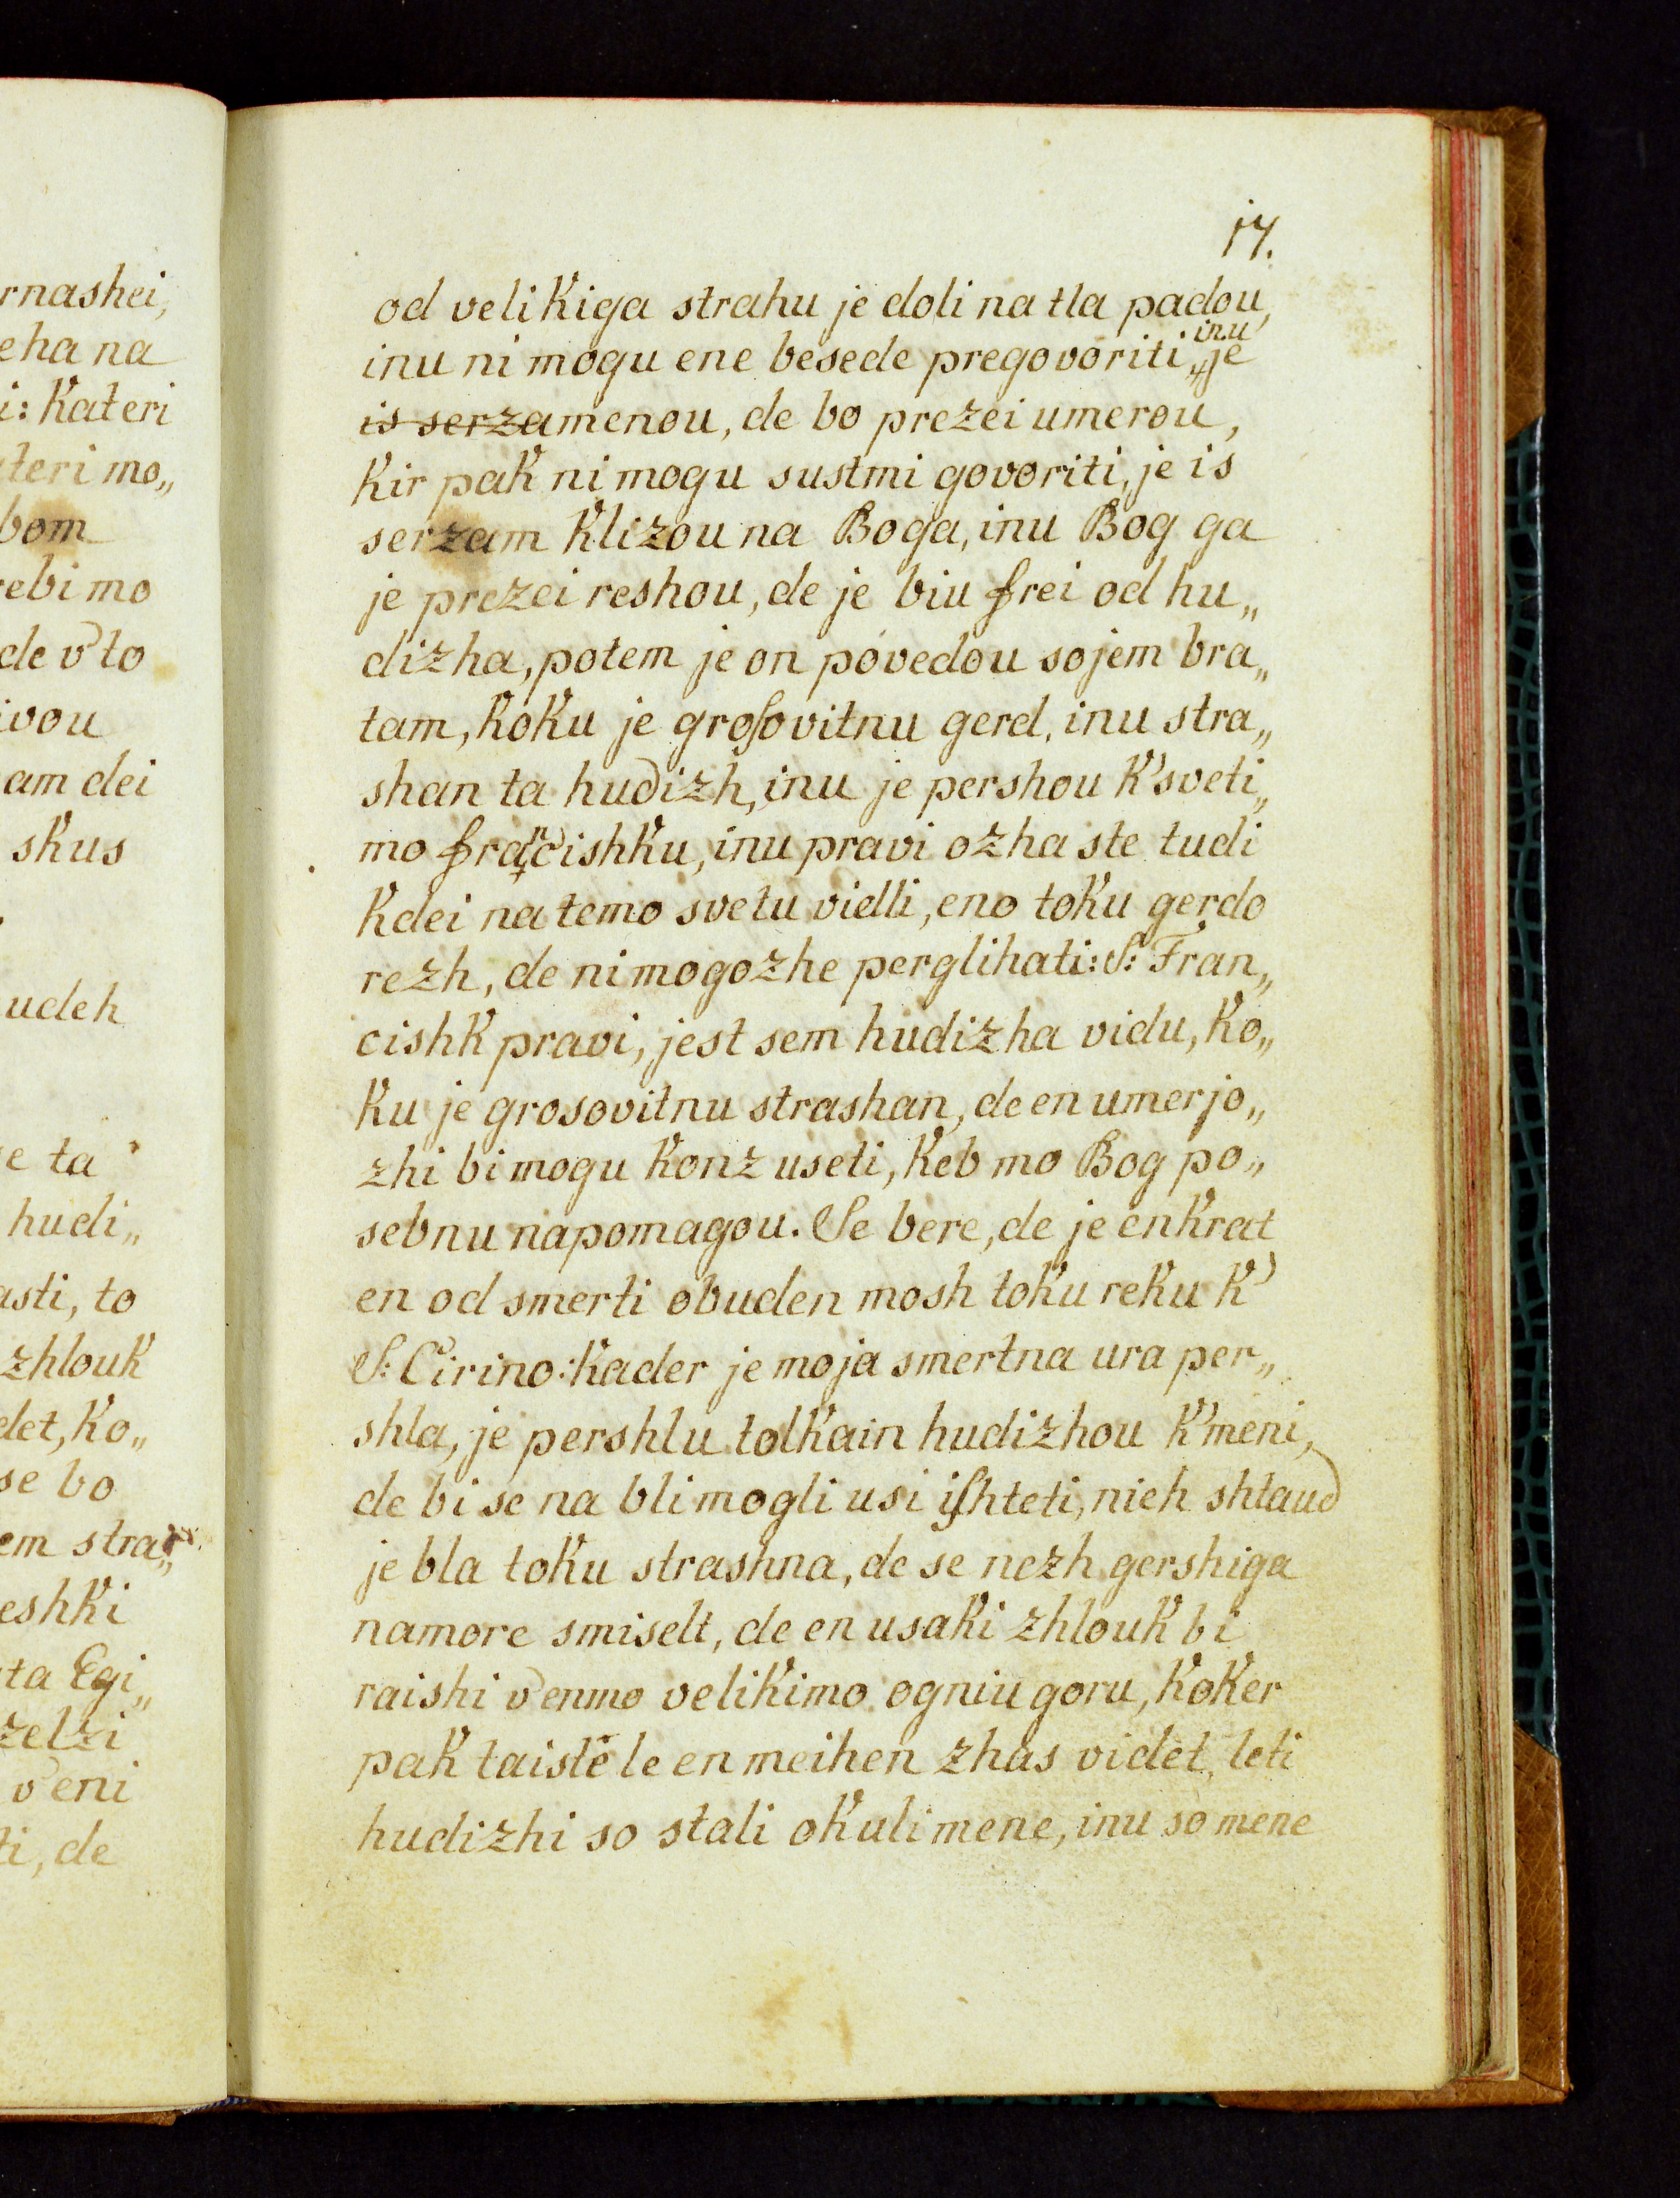 17.
od velikiga strahu je doli na tla padou,
inu ni mogu ene besede pregovoriti, inu je
is serzamenou, de bo prezei umerou,
kir pak ni mogu sustmi govoriti, je is
serzam klizou na Boga, inu Bog ga
je prezei reshou, de je biu frei od hu„
dizha, potem je on povedou sojem bra„
tam, koku je groſovitnu gerd, inu stra„
shan ta hudizh, inu je pershou k'sveti„
mo francishku, inu pravi ozha ste tudi
kdei na temo svetu vidli, eno toku gerdo
rezh, de ni mogozhe perglihati: S: Fran„
cishk pravi, jest sem hudizha vidu, ko„
ku je grosovitnu strashan, de en umerjo„
zhi bi mogu konz useti, keb mo Bog po„
sebnu napomagou. Se bere, de je enkrat
en od smerti obuden mosh toku reku k'
S: Cirino: kader je moja smertna ura per„
shla, je pershlu tolkain hudizhou k'meni,
de bi se na bli mogli usi iſhteti, nieh shtaud
je bla toku strashna, de se nezh gershiga
namore smiselt, de en usaki zhlouk bi
raishi v'enmo velikimo ogniu goru, koker
pak taistē le en meihen zhas videt, leti
hudizhi so stali okuli mene, inu so mene
rnashei,
eha na
i: kateri
teri mo„
bom
rebi mo
de v'to
ivou
am dei
skus
udeh
e ta
hudi„
asti, to
zhlouk
det, ko„
se bo
em stra„
eshki
ta Egi„
zelzi
v'eni
ti, de